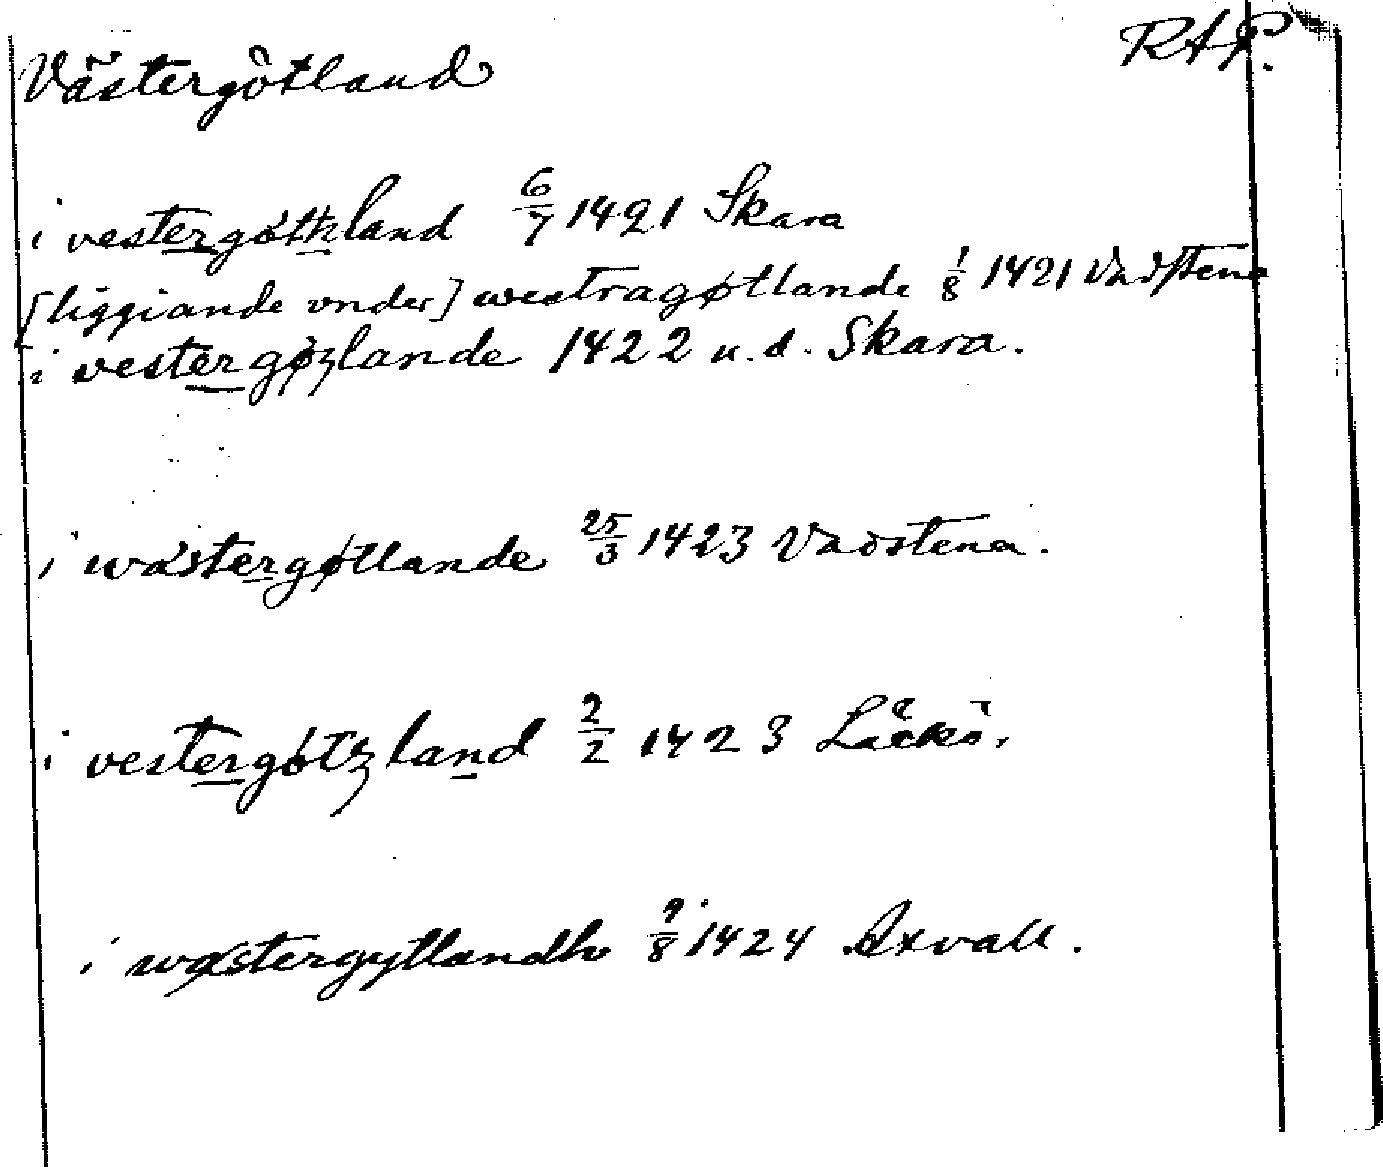 Västergötland RAP.
i vestergóthland 6/7 1421 Skara
[liggiande vnder] westragøtlande 1/8 1421 Vadstena
i vestergøzlande 1422 u. d. Skara.
i wástergøtlande 25/3 1423 Vadstena.
i vestergótzland 2/2 1423 Läckö.
i wæstergytlandh 9/8 1424 Axvall.